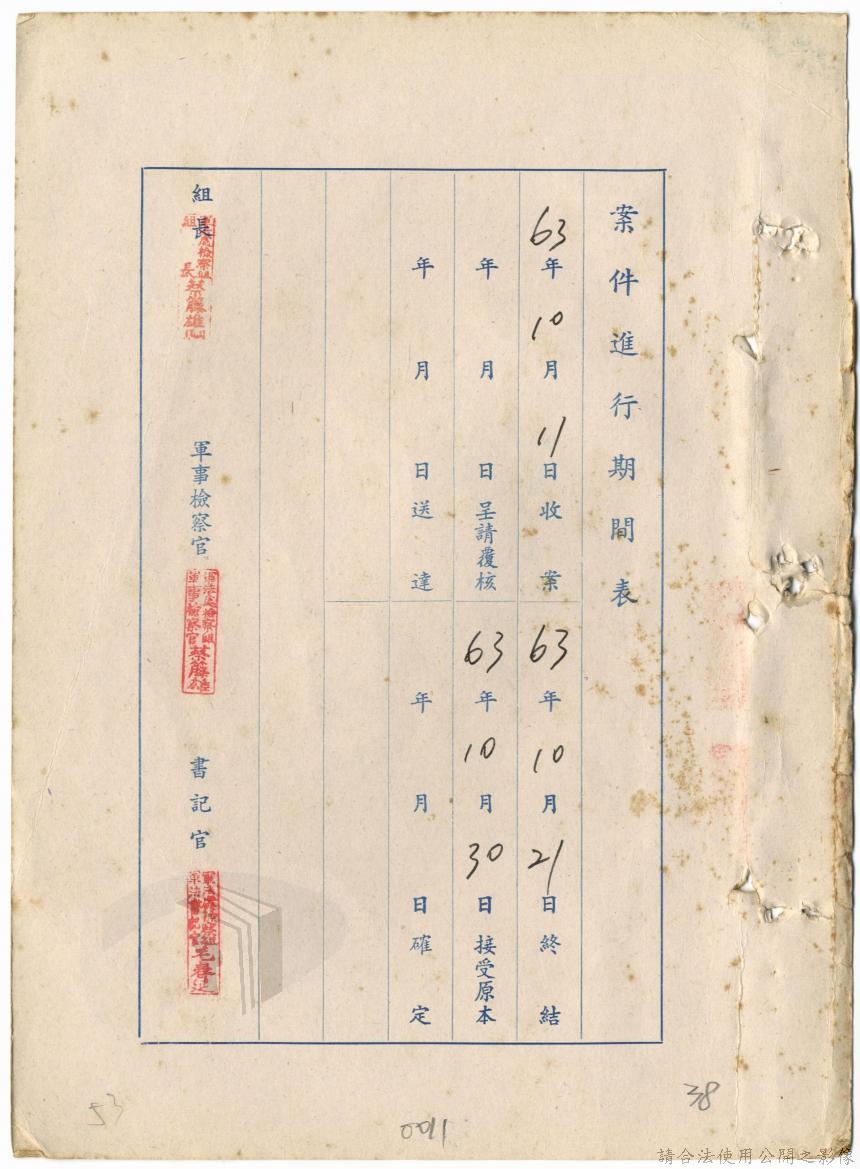 案件進行期間表
63年10月11日收案
63年10月21日終結
年月日呈請覆核
63年10月30日接受原本
年月日送達
年月日確定
組長
檢察組
組長蔡籐雄
軍事檢察官
軍法處檢察組
軍事檢察官蔡籐雄
書記官
毛春
53
0011
38
請合法使用公開之影像